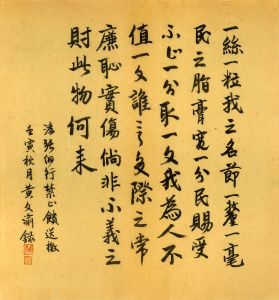 一絲一粒我之名節一釐一毫
民之脂膏寬一分民賜受
不止一分取一文我為人不
值一文誰云交際之常
廉恥實傷倘非不義之
財此物何来
清張伯行禁止饋送檄
壬寅秋月黄文錄